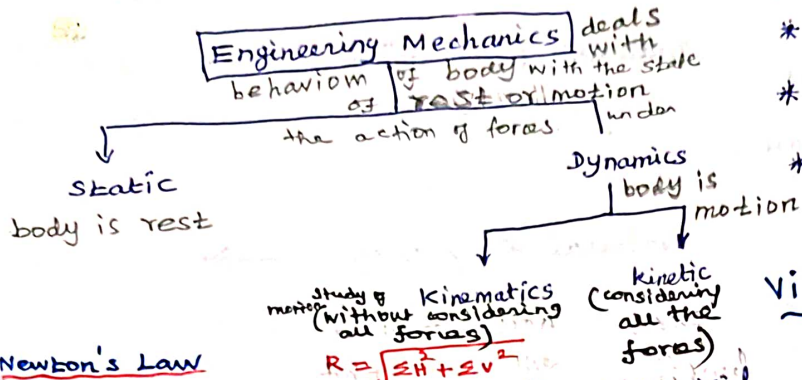 Engineering Mechanics deals with
behaviour of body with the state
of rest or motion
the action of forces under
Static
body is rest
Dynamics
body is
motion
Study of motion
Kinematics
(without considering
all forces)
Kinetic
(considering
all the
forces)
Vi
Newton's Law
R = √ΣH² + ΣV²